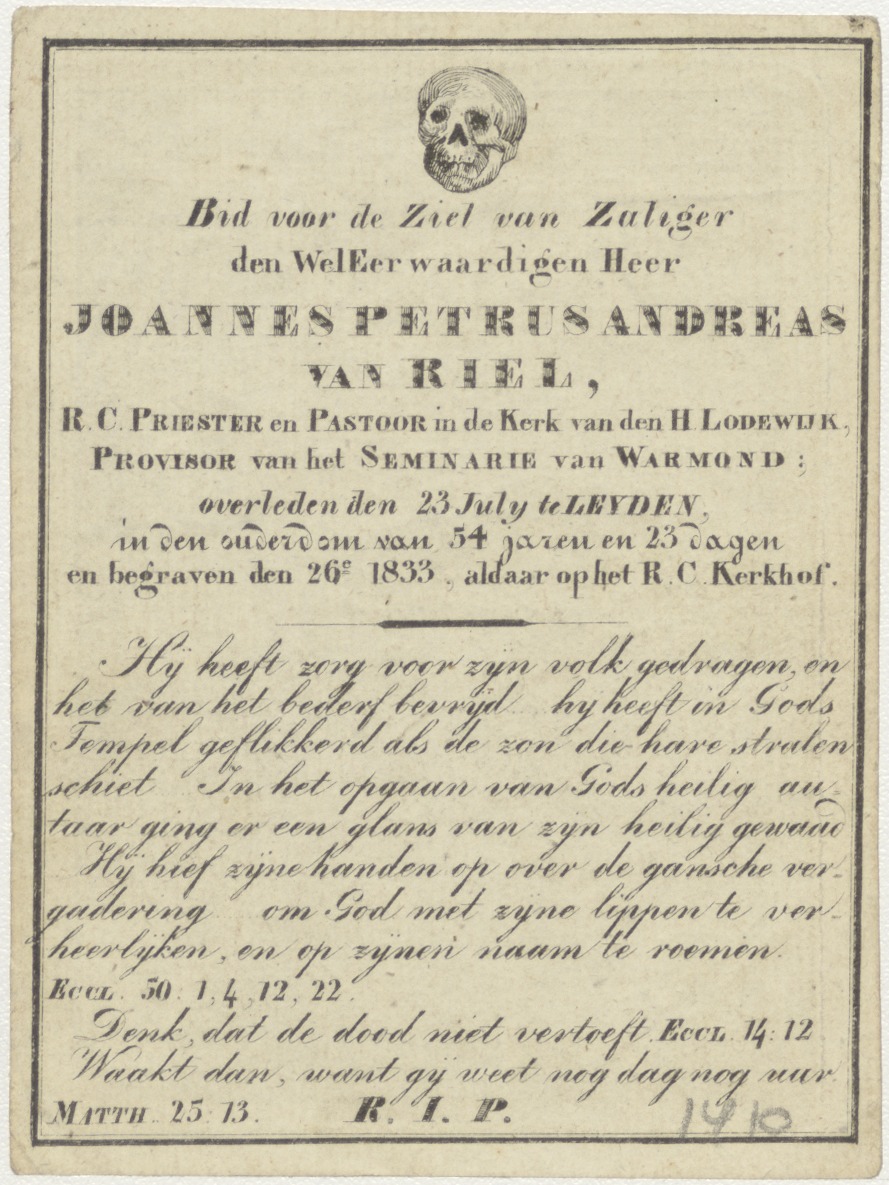 Bid voor de Ziel van Zaliger
den WelEerwaardigen Heer
JOANNES PETRUS ANDREAS
VAN RIEL,
R. C. PRIESTER en PASTOOR in de Kerk van den H. LODEWIJK,
PROVISOR van het SEMINARIE van WARMOND;
overleden den 23 July te LEYDEN,
in den ouderdom van 54 jaren en 23 dagen
en begraven den 26e 1833, aldaar op het R. C. Kerkhof.
Hij heeft zorg voor zyn volk gedragen, en
het van het bederf bevryd hy heeft in Gods
Tempel geflikkerd als de zon die hare stralen
schiet In het opgaan van Gods heilig au-
taar ging er een glans van zyn heilig gewaad
Hij hief zyne handen op over de gansche ver-
gadering om God met zyne lippen te ver-
heerlyken, en op zynen naam te roemen.
ECCL. 50: 1, 4, 12, 22.
Denk, dat de dood niet vertoeft. ECCL. 14: 12
Waakt dan, want gy weet nog dag nog uur.
MATTH. 25: 13. R. I. P.
1410